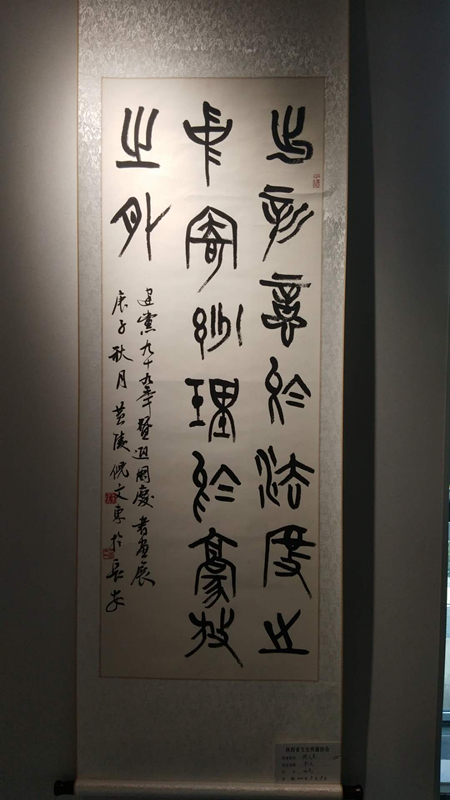 出新意於法度之
中寄妙理於豪放
之外
建黨九十九年暨迎國慶書畫展
庚子秋月黄陵倪文東於長安